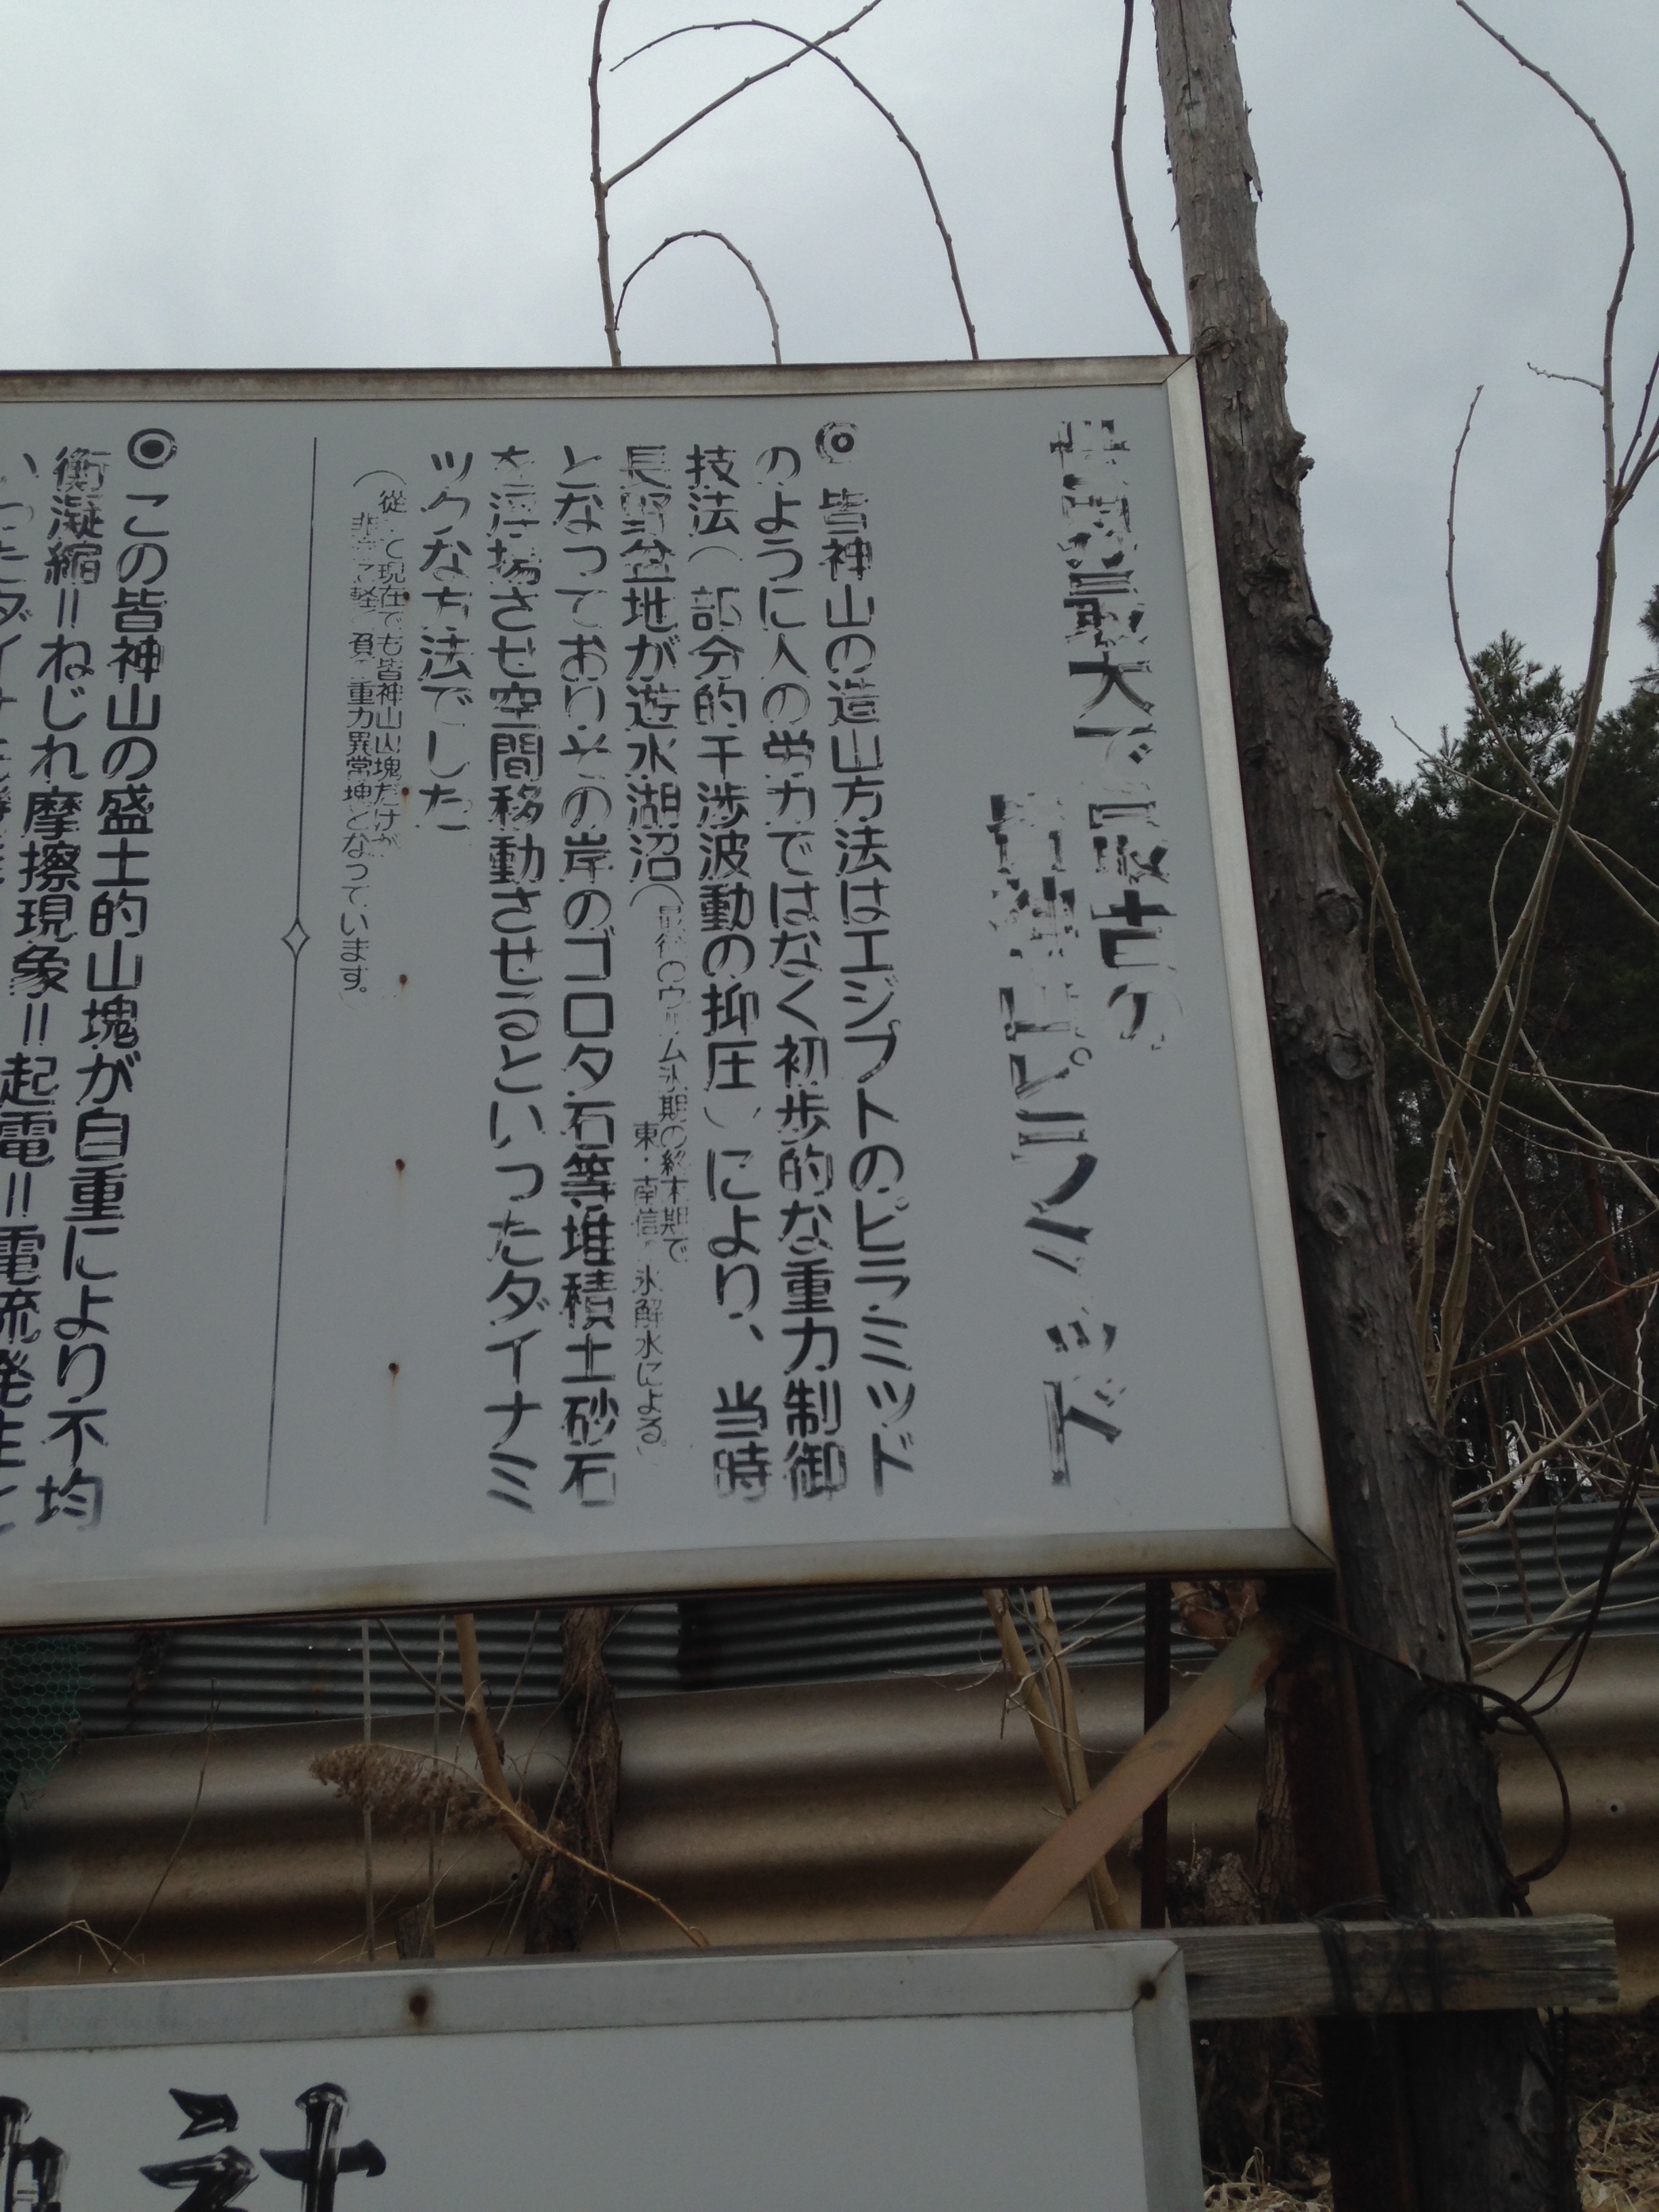 世界最大で最古の
皆神山ピラミッド
◎皆神山の造山方法はエジプトのピラミッド
のように人の労力ではなく初歩的な重力制御
技法(部分的干渉波動の抑圧)により、当時
長野盆地が遊水湖沼(最後のウルム氷期の終末期で
東・南信の氷解水による)
となっておりその岸のゴロタ石等堆積土砂石
を浮揚させ空間移動させるといったダイナミ
ックな方法でした
(従って現在でも皆神山山塊だけが
非常に軽く負の重力異常塊となっています。)
◎この皆神山の盛土的山塊が自重により不均
衡凝縮=ねじれ摩擦現象=起電=電流発生と
いったダイナ
神社